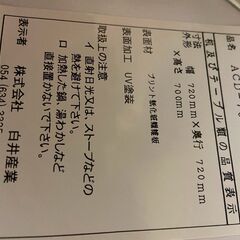 品名 ACD
机及びテーブル類の品質表示
寸法 幅 720mm×奥行 720mm
外形 ×高さ 700mm
表面材 プリント紙化粧繊維板
表面加工 UV塗装
取扱上の注意
イ 直射日光又は、ストーブなどの
熱を避けて下さい。
ロ 加熱した鍋、湯わかしなど
直接置かないで下さい。
表示者
株式会社 白井産業
054(634)